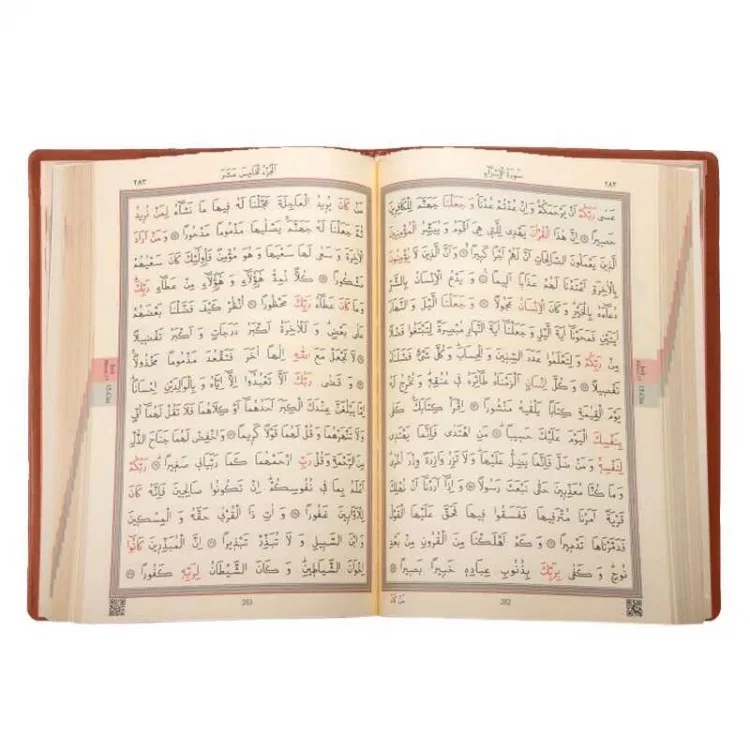 سورة الإسراء
٢٨٢
عَسَى رَبُّكُمْ اَنْ يَرْحَمَكُمْ وَاِنْ عُدْتُمْ عُدْنَا وَ جَعَلْنَا جَهَنَّمَ لِلْكَافِرِينَ
حَصِيرًا اِنَّ هٰذَا الْقُرْاٰنَ يَهْدِي لِلَّتِي هِيَ اَقْوَمُ وَ يُبَشِّرُ الْمُؤْمِنِينَ
الَّذِينَ يَعْمَلُونَ الصَّالِحَاتِ اَنَّ لَهُمْ اَجْرًا كَبِيرًا وَ اَنَّ الَّذِينَ لَا يُؤْمِنُونَ
بِالْاٰخِرَةِ اَعْتَدْنَا لَهُمْ عَذَابًا اَلِيمًا وَ يَدْعُ الْاِنْسَانُ بِالشَّرِّ
دُعَاءَهُ بِالْخَيْرِ وَ كَانَ الْاِنْسَانُ عَجُولًا وَ جَعَلْنَا الَّيْلَ وَ النَّهَارَ
اٰيَتَيْنِ فَمَحَوْنَا اٰيَةَ الَّيْلِ وَ جَعَلْنَا اٰيَةَ النَّهَارِ مُبْصِرَةً لِتَبْتَغُوا فَضْلًا
مِنْ رَبِّكُمْ وَ لِتَعْلَمُوا عَدَدَ السِّنِينَ وَ الْحِسَابَ وَ كُلَّ شَيْءٍ فَصَّلْنَاهُ
تَفْصِيلًا وَ كُلَّ اِنْسَانٍ اَلْزَمْنَاهُ طَائِرَهُ فِي عُنُقِهِ وَ نُخْرِجُ لَهُ
يَوْمَ الْقِيٰمَةِ كِتَابًا يَلْقٰيهُ مَنْشُورًا اِقْرَأْ كِتَابَكَ كَفٰى
بِنَفْسِكَ الْيَوْمَ عَلَيْكَ حَسِيبًا مَنِ اهْتَدٰى فَاِنَّمَا يَهْتَدِي
لِنَفْسِهِ وَ مَنْ ضَلَّ فَاِنَّمَا يَضِلُّ عَلَيْهَا وَ لَا تَزِرُ وَازِرَةٌ وِزْرَ اُخْرٰى
وَ مَا كُنَّا مُعَذِّبِينَ حَتّٰى نَبْعَثَ رَسُولًا وَ اِذَا اَرَدْنَا اَنْ نُهْلِكَ
قَرْيَةً اَمَرْنَا مُتْرَفِيهَا فَفَسَقُوا فِيهَا فَحَقَّ عَلَيْهَا الْقَوْلُ
فَدَمَّرْنَاهَا تَدْمِيرًا وَ كَمْ اَهْلَكْنَا مِنَ الْقُرُونِ مِنْ بَعْدِ
نُوحٍ وَ كَفٰى بِرَبِّكَ بِذُنُوبِ عِبَادِهِ خَبِيرًا بَصِيرًا
مَنْ كَانَ
282
الجزء الخامس عشر
٢٨٣
مَنْ كَانَ يُرِيدُ الْعَاجِلَةَ عَجَّلْنَا لَهُ فِيهَا مَا نَشَاءُ لِمَنْ نُرِيدُ
ثُمَّ جَعَلْنَا لَهُ جَهَنَّمَ يَصْلٰيهَا مَذْمُومًا مَدْحُورًا وَ مَنْ اَرَادَ
الْاٰخِرَةَ وَ سَعٰى لَهَا سَعْيَهَا وَ هُوَ مُؤْمِنٌ فَاُولٰئِكَ كَانَ سَعْيُهُمْ
مَشْكُورًا كُلًّا نُمِدُّ هٰؤُلَاءِ وَ هٰؤُلَاءِ مِنْ عَطَاءِ رَبِّكَ
وَ مَا كَانَ عَطَاءُ رَبِّكَ مَحْظُورًا اُنْظُرْ كَيْفَ فَضَّلْنَا بَعْضَهُمْ
عَلٰى بَعْضٍ وَ لَلْاٰخِرَةُ اَكْبَرُ دَرَجَاتٍ وَ اَكْبَرُ تَفْضِيلًا
لَا تَجْعَلْ مَعَ اللّٰهِ اِلٰهًا اٰخَرَ فَتَقْعُدَ مَذْمُومًا مَخْذُولًا
وَ قَضٰى رَبُّكَ اَلَّا تَعْبُدُوا اِلَّا اِيَّاهُ وَ بِالْوَالِدَيْنِ اِحْسَانًا
اِمَّا يَبْلُغَنَّ عِنْدَكَ الْكِبَرَ اَحَدُهُمَا اَوْ كِلَاهُمَا فَلَا تَقُلْ لَهُمَا اُفٍّ
وَ لَا تَنْهَرْهُمَا وَ قُلْ لَهُمَا قَوْلًا كَرِيمًا وَ اخْفِضْ لَهُمَا جَنَاحَ الذُّلِّ
مِنَ الرَّحْمَةِ وَ قُلْ رَبِّ ارْحَمْهُمَا كَمَا رَبَّيَانِي صَغِيرًا رَبُّكُمْ
اَعْلَمُ بِمَا فِي نُفُوسِكُمْ اِنْ تَكُونُوا صَالِحِينَ فَاِنَّهُ كَانَ
لِلْاَوَّابِينَ غَفُورًا وَ اٰتِ ذَا الْقُرْبٰى حَقَّهُ وَ الْمِسْكِينَ
وَ ابْنَ السَّبِيلِ وَ لَا تُبَذِّرْ تَبْذِيرًا اِنَّ الْمُبَذِّرِينَ كَانُوا
اِخْوَانَ الشَّيَاطِينِ وَ كَانَ الشَّيْطَانُ لِرَبِّهِ كَفُورًا
283